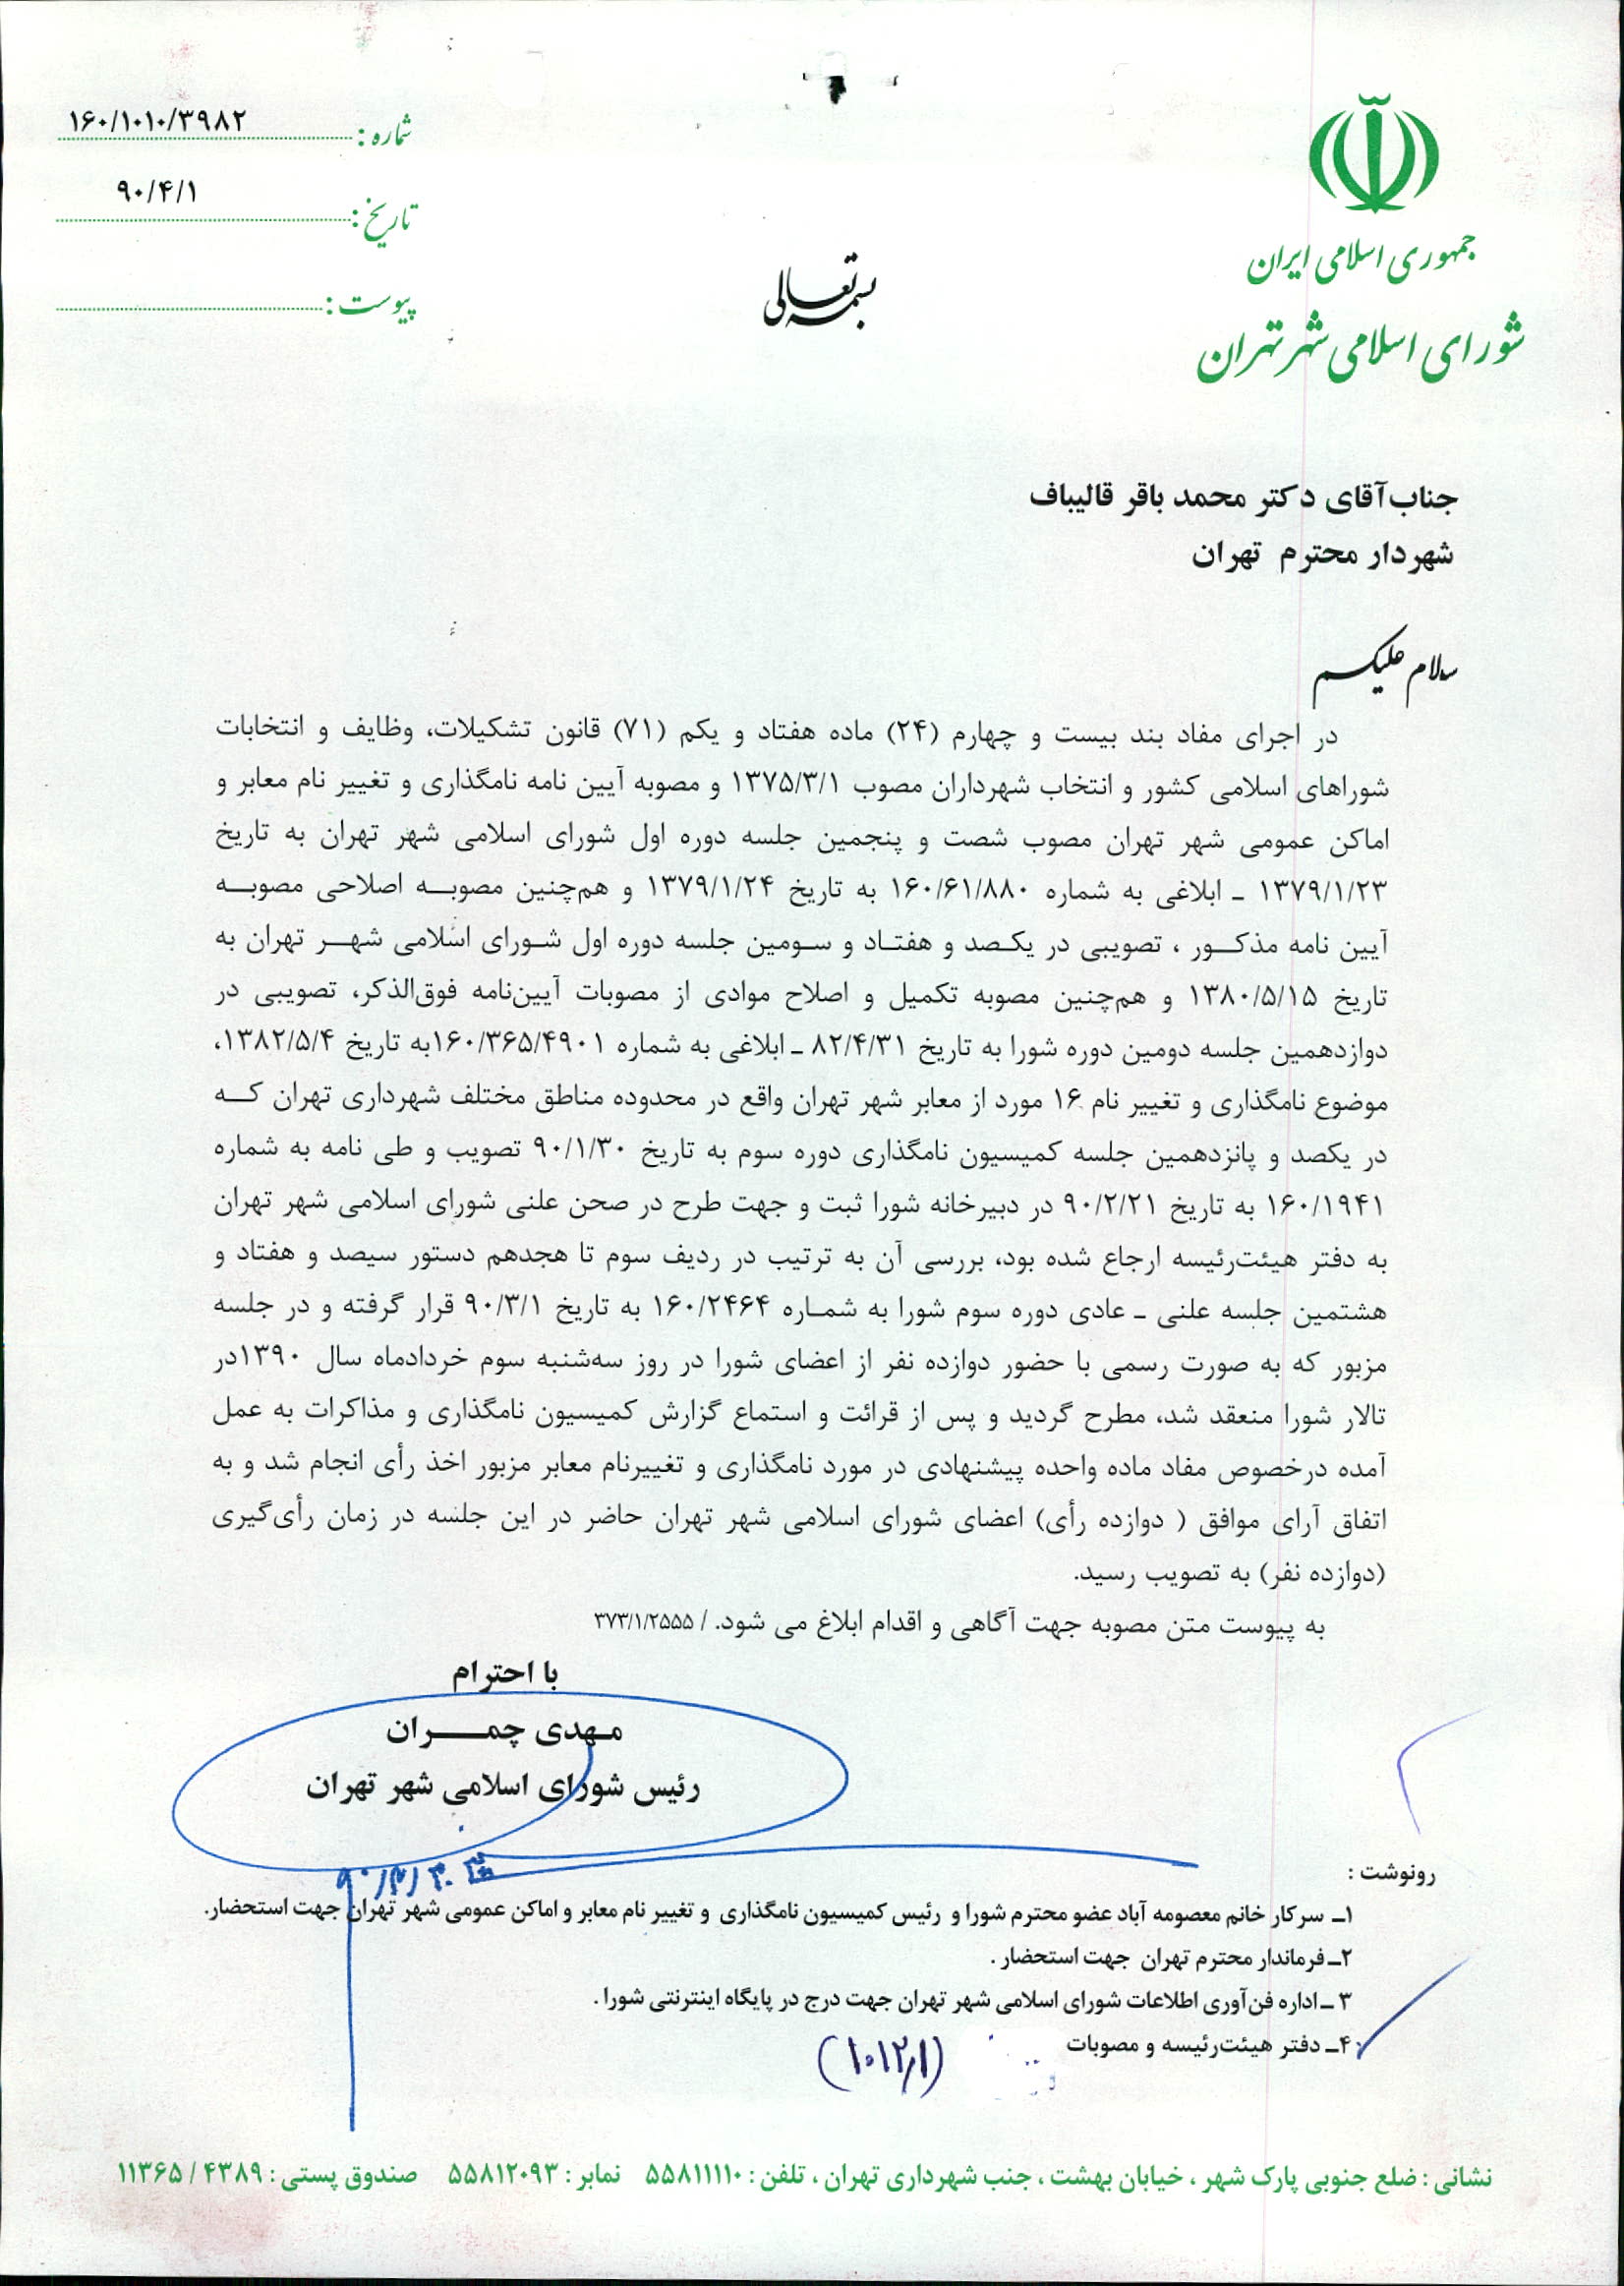 شماره : ۱۶۰/۱۰۱۰/۳۹۸۲
تاریخ : ۹۰/۴/۱
پیوست :
بسمه تعالی
جمهوری اسلامی ایران
شورای اسلامی شهر تهران
جناب آقای دکتر محمد باقر قالیباف
شهردار محترم تهران
سلام علیکم
در اجرای مفاد بند بیست و چهارم (۲۴) ماده هفتاد و یکم (۷۱) قانون تشکیلات، وظایف و انتخابات
شوراهای اسلامی کشور و انتخاب شهرداران مصوب ۱۳۷۵/۳/۱ و مصوبه آیین نامه نامگذاری و تغییر نام معابر و
اماکن عمومی شهر تهران مصوب شصت و پنجمین جلسه دوره اول شورای اسلامی شهر تهران به تاریخ
۱۳۷۹/۱/۲۳ ـ ابلاغی به شماره ۱۶۰/۶۱/۸۸۰ به تاریخ ۱۳۷۹/۱/۲۴ و هم‌چنین مصوبـه اصلاحی مصوبـه
آیین نامه مذکـور ، تصویبی در یکـصد و هفتـاد و سـومین جلسه دوره اول شـورای اسلامی شهـر تهران به
تاریخ ۱۳۸۰/۵/۱۵ و هم‌چنین مصوبه تکمیل و اصلاح موادی از مصوبات آیین‌نامه فوق‌الذکر، تصویبی در
دوازدهمین جلسه دومین دوره شورا به تاریخ ۸۲/۴/۳۱ ـ ابلاغی به شماره ۱۶۰/۳۶۵/۴۹۰۱به تاریخ ۱۳۸۲/۵/۴،
موضوع نامگذاری و تغییر نام ۱۶ مورد از معابر شهر تهران واقع در محدوده مناطق مختلف شهرداری تهران کـه
در یکصد و پانزدهمین جلسه کمیسیون نامگذاری دوره سوم به تاریخ ۹۰/۱/۳۰ تصویب و طی نامه به شماره
۱۶۰/۱۹۴۱ به تاریخ ۹۰/۲/۲۱ در دبیرخانه شورا ثبت و جهت طرح در صحن علنی شورای اسلامی شهر تهران
به دفتر هیئت‌رئیسه ارجاع شده بود، بررسی آن به ترتیب در ردیف سوم تا هجدهم دستور سیصد و هفتاد و
هشتمین جلسه علنی ـ عادی دوره سوم شورا به شمـاره ۱۶۰/۲۴۶۴ به تاریخ ۹۰/۳/۱ قرار گرفته و در جلسه
مزبور که به صورت رسمی با حضور دوازده نفر از اعضای شورا در روز سه‌شنبه سوم خردادماه سال ۱۳۹۰در
تالار شورا منعقد شد، مطرح گردید و پس از قرائت و استماع گزارش کمیسیون نامگذاری و مذاکرات به عمل
آمده درخصوص مفاد ماده واحده پیشنهادی در مورد نامگذاری و تغییرنام معابر مزبور اخذ رأی انجام شد و به
اتفاق آرای موافق ( دوازده رأی) اعضای شورای اسلامی شهر تهران حاضر در این جلسه در زمان رأی‌گیری
(دوازده نفر) به تصویب رسید.
به پیوست متن مصوبه جهت آگاهی و اقدام ابلاغ می شود. / ۳۷۳/۱/۲۵۵۵
با احترام
مـهدی چمـــران
رئیس شورای اسلامی شهر تهران
رونوشت :
۱ـ سرکار خانم معصومه آباد عضو محترم شورا و رئیس کمیسیون نامگذاری و تغییر نام معابر و اماکن عمومی شهر تهران جهت استحضار.
۲ـ فرماندار محترم تهران جهت استحضار .
۳ ـ اداره فن‌آوری اطلاعات شورای اسلامی شهر تهران جهت درج در پایگاه اینترنتی شورا .
۴ـ دفتر هیئت‌رئیسه و مصوبات
نشانی : ضلع جنوبی پارک شهر ، خیابان بهشت ، جنب شهرداری تهران ، تلفن : ۵۵۸۱۱۱۱۰ نمابر : ۵۵۸۱۲۰۹۳ صندوق پستی : ۴۳۸۹ / ۱۱۳۶۵